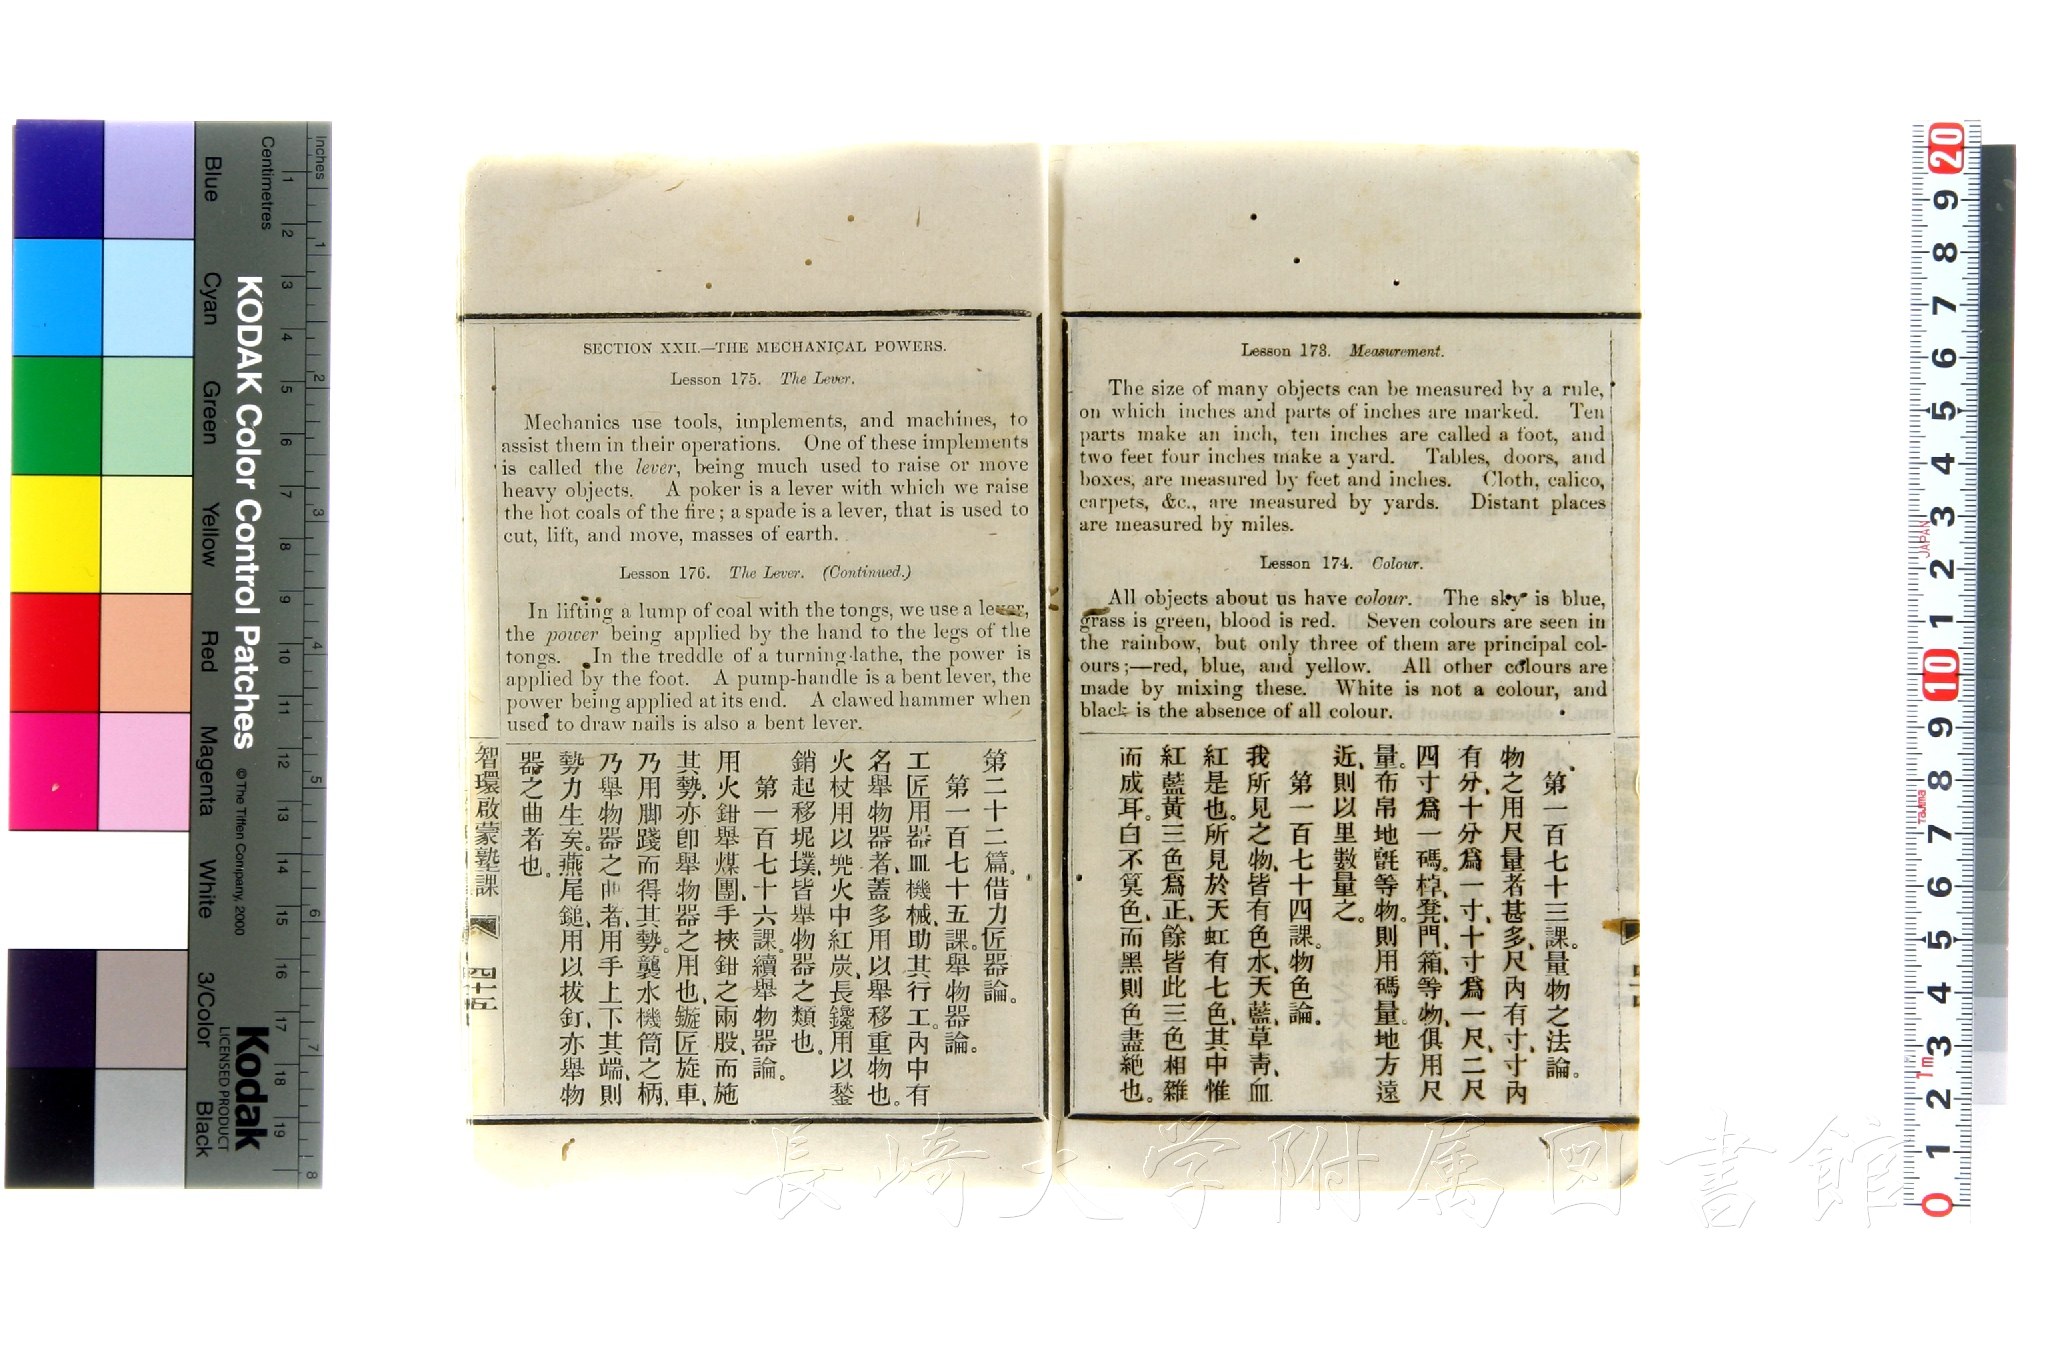 Lesson 173. Measurement.
The size of many objects can be measured by a rule,
on which inches and parts of inches are marked. Ten
parts make an inch, ten inches are called a foot, and
two feet four inches make a yard. Tables, doors, and
boxes, are measured by feet and inches. Cloth, calico,
carpets, &c., are measured by yards. Distant places
are measured by miles.
Lesson 174. Colour.
All objects about us have colour. The sky is blue,
grass is green, blood is red. Seven colours are seen in
the rainbow, but only three of them are principal col-
ours;—red, blue, and yellow. All other colours are
made by mixing these. White is not a colour, and
black is the absence of all colour.
第一百七十三課。量物之法論。
物之用尺量者甚多、尺內有寸、寸內
有分、十分爲一寸、十寸爲一尺、二尺
四寸爲一碼。檯凳門、箱等物、俱用尺
量。布帛地氈等物。則用碼量。地方遠
近、則以里數量之。
第一百七十四課。物色論。
我所見之物、皆有色、水天藍、草靑、血
紅是也。所見於天虹有七色、其中惟
紅藍黃三色爲正、餘皆此三色相雜
而成耳。白不算色、而黑則色盡絕也。
SECTION XXII.—THE MECHANICAL POWERS.
Lesson 175. The Lever.
Mechanics use tools, implements, and machines, to
assist them in their operations. One of these implements
is called the lever, being much used to raise or move
heavy objects. A poker is a lever with which we raise
the hot coals of the fire; a spade is a lever, that is used to
cut, lift, and move, masses of earth.
Lesson 176. The Lever. (Continued.)
In lifting a lump of coal with the tongs, we use a lever,
the power being applied by the hand to the legs of the
tongs. In the treddle of a turning-lathe, the power is
applied by the foot. A pump-handle is a bent lever, the
power being applied at its end. A clawed hammer when
used to draw nails is also a bent lever.
第二十二篇。借力匠器論。
第一百七十五課。舉物器論。
工匠用器皿機械、助其行工。內中有
名舉物器者、蓋多用以舉移重物也。
火杖用以兠火中紅炭、長鑱用以鍫
銷起移坭墣、皆舉物器之類也。
第一百七十六課。續舉物器論。
用火鉗舉煤團、手挾鉗之兩股、而施
其勢、亦卽舉物器之用也、鏇匠旋車、
乃用脚踐而得其勢。龑水機筒之柄、
乃舉物器之曲者、用手上下其端、則
勢力生矣。燕尾鎚、用以拔釘、亦舉物
器之曲者也。
智環啟蒙塾課
四十五
KODAK Color Control Patches
© The Tiffen Company, 2000
Kodak
LICENSED PRODUCT
Inches
Centimetres
Blue
Cyan
Green
Yellow
Red
Magenta
White
3/Color
Black
1 2 3 4 5 6 7 8 9 10 11 12 13 14 15 16 17 18 19
1 2 3 4 5 6 7 8
20 9 8 7 6 5 4 3 2 1 10 9 8 7 6 5 4 3 2 1 0
JAPAN
Tajima
1m
長崎大学附属図書館